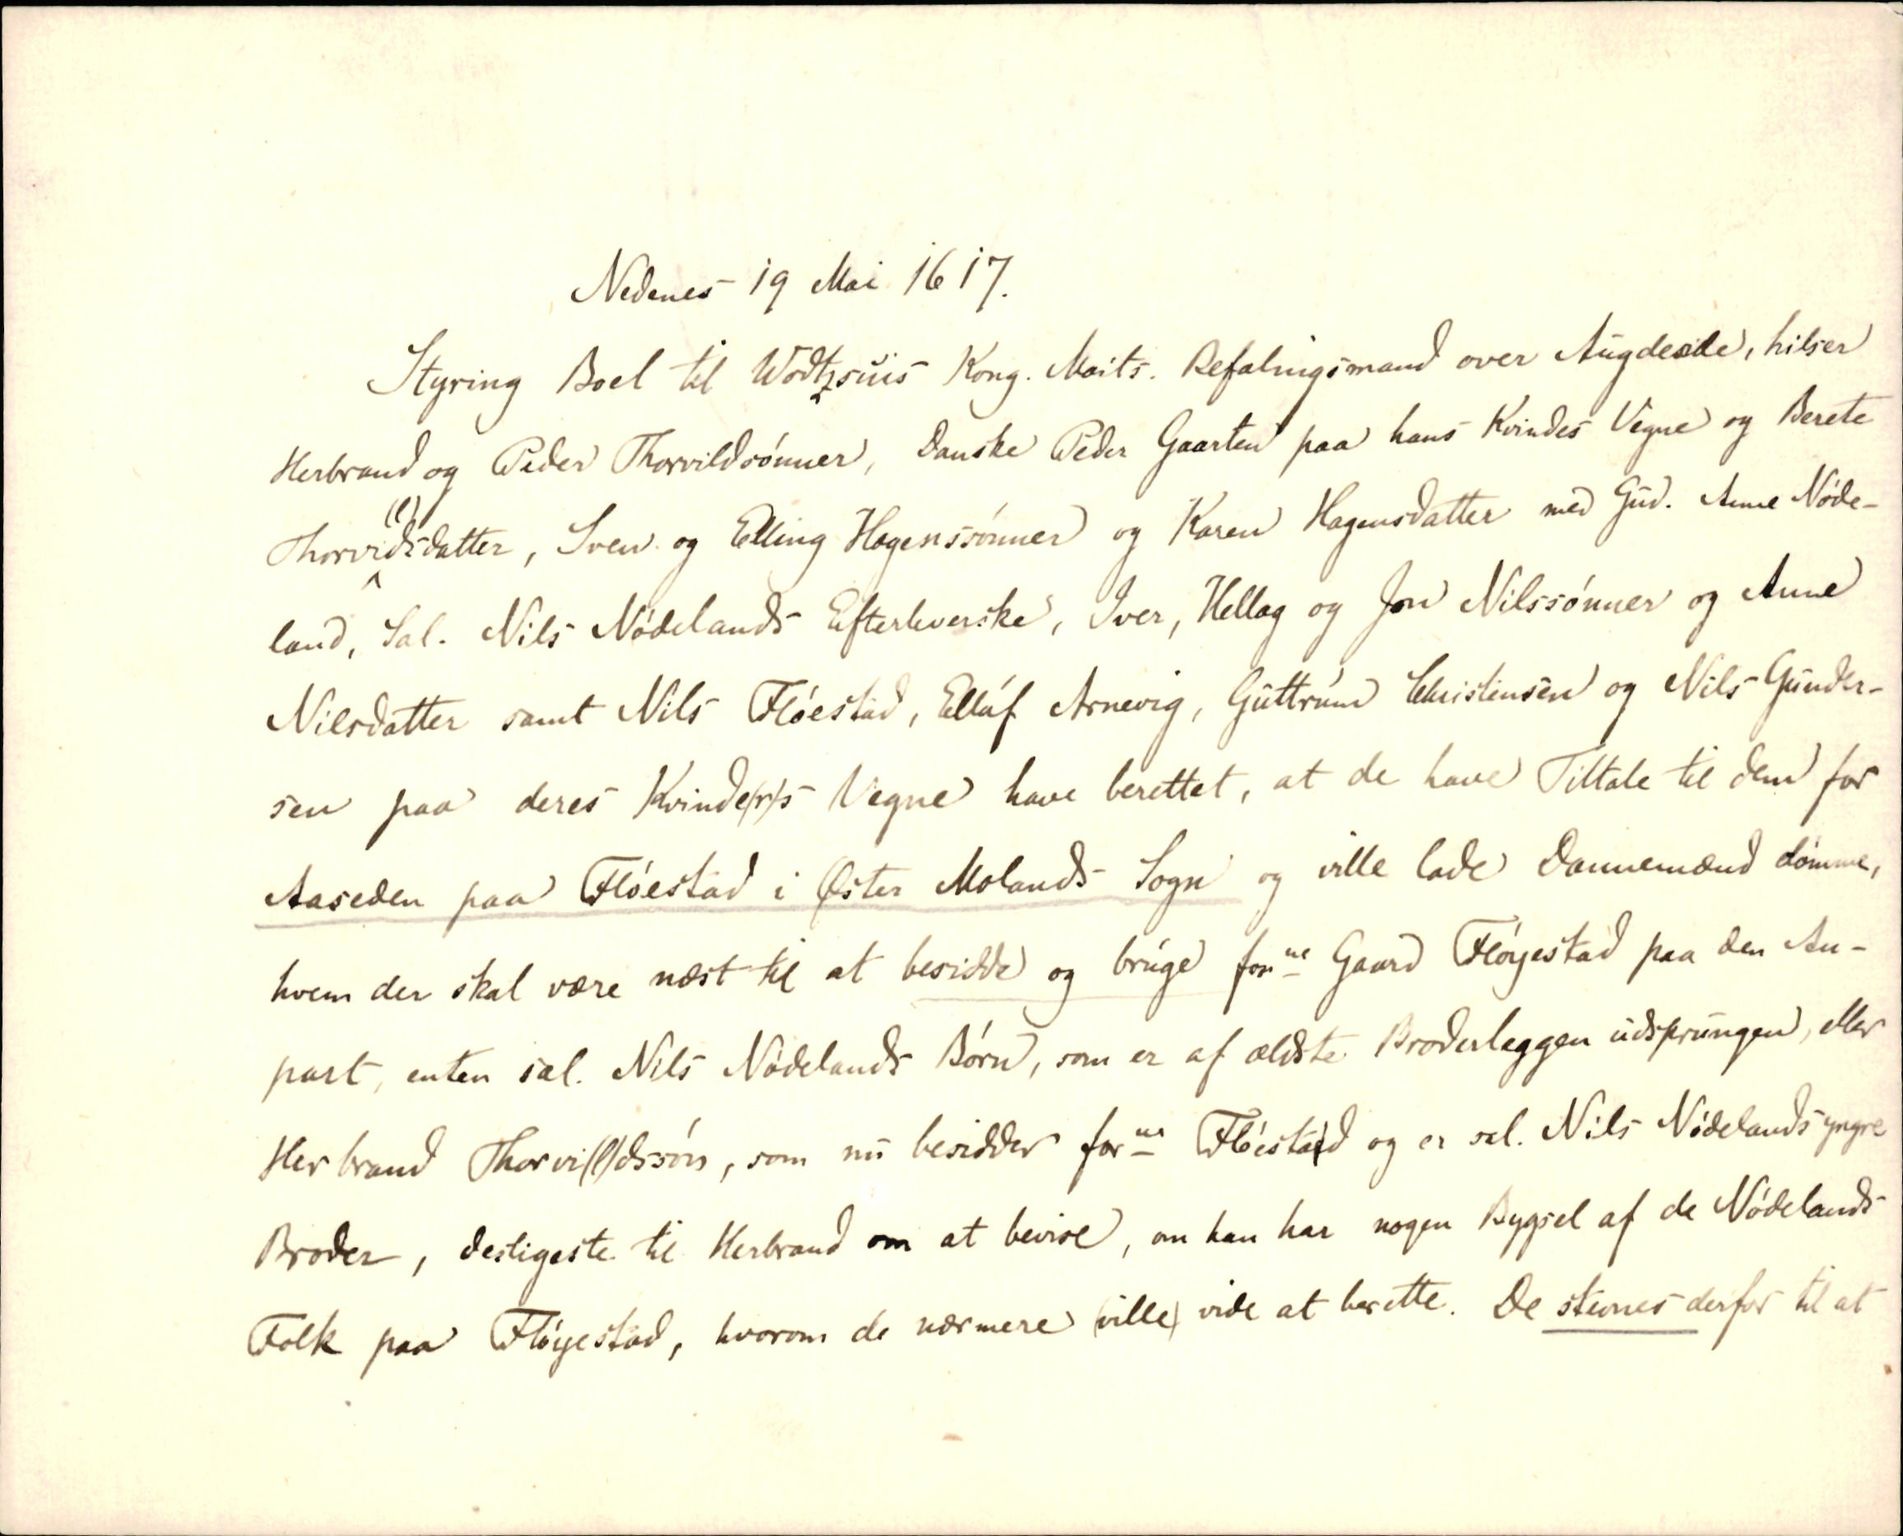 Nedenes 19 Mai 1617.
Styring Boel til Wodtzsuis Kong. Maits. Befalingsmand over Augdeside, hilser
Herbrand og Peder Thorvildsönner, Danske Peder Gaarten paa hans Kvindes Vegne og Berete
Thorvi(l)dsdatter, Sven og Elling Hagenssönner og Karen Hagensdatter med Gud. Anne Nöde-
land, Sal. Nils Nödelands Efterleverske, Iver, Hellag og Jon Nilssönner og Anne
Nilsdatter samt Nils Flöestad, Elluf Arnevig, Guttrum Christensen og Nils Gunder-
sen paa deres Kvinde(r)s Vegne have berettet, at de have Tiltale til dem for
Aaseden paa Flöestad i Öster Molands Sogn og ville lade Dannemænd dömme,
hvem der skal være næst til at besidde og bruge forne Gaard Flöyestad paa den An-
part, enten sal. Nils Nödelands Börn, som er af ældste Broderleggen udsprungen, eller
Herbrand Thorvi(l)dssön, som nu besidder forne Flöestad og er sal. Nils Nödelands yngre
Broder, desligeste til Herbrand om at bevise, om han har nogen Bygsel af de Nödelands
Folk paa Flöyestad, hvorom de nærmere (ville) vide at berette. De stevnes derfor til at